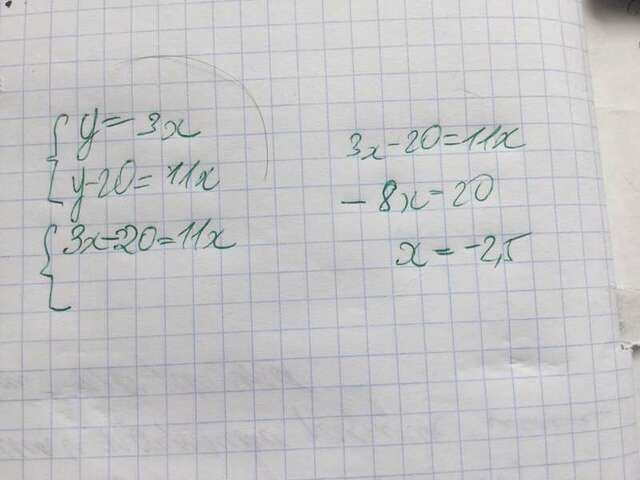 y = 3x
y - 20 = 11x
3x - 20 = 11x
3x - 20 = 11x
- 8x = 20
x = -2,5